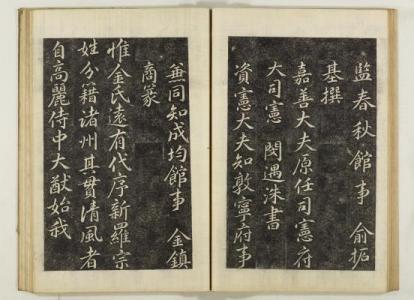 監春秋館事 俞拓
基撰
嘉善大夫原任司憲府
大司憲 閔遇洙書
資憲大夫知敦寧府事
兼同知成均館事 金鎮
商篆
惟金氏遠有代序新羅宗
姓分籍諸州其貫清風者
自高麗侍中大猷始我